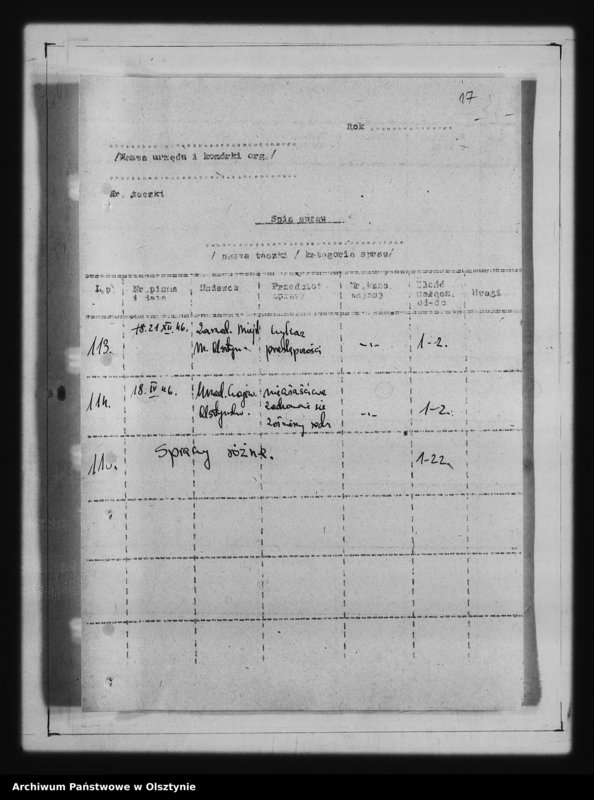 17
Rok
/Nazwa urzędu i komórki org./
Nr. teczki
Spis spraw
/ nazwa teczki / kategoria spraw/
L.p. Nr. pisma Nadawca Przedmiot Nr. kanc. Ilość Uwagi
i data sprawy sprawy załącz.
od-do
113. 18.21 XII. 46. Zarząd Miejs. Wykaz
m. Olsztyn przestępności -"- 1-2.
114. 18. IV 46. Urząd niewłaściwe
Olsztynku. zachowanie się -"- 1-2.
żołnierzy radz
Sprawy różne. 1-22.
Archiwum Państwowe w Olsztynie